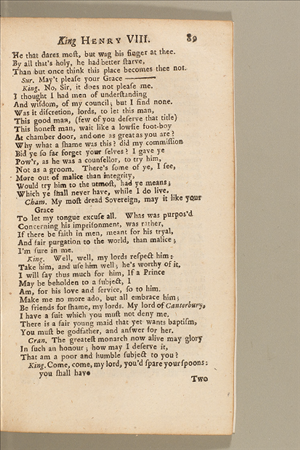 King HENRY VIII. 89
He that dares moſt, but wag his finger at thee.
By all that's holy, he had better ſtarve,
Than but once think this place becomes thee not.
Sur. May't pleaſe your Grace ———
King. No, Sir, it does not pleaſe me.
I thought I had men of underſtanding
And wiſdom, of my council; but I find none.
Was it diſcretion, lords, to let this man,
This good man, (few of you deſerve that title)
This honeſt man, wait like a lowſie foot-boy
At chamber door, and one as great as you are?
Why what a ſhame was this? did my commiſſion
Bid ye ſo far forget your ſelves? I gave ye
Pow'r, as he was a counſellor, to try him,
Not as a groom. There's ſome of ye, I ſee,
More out of malice than integrity,
Would try him to the utmoſt, had ye means;
Which ye ſhall never have, while I do live.
Cham. My moſt dread Sovereign, may it like your
Grace
To let my tongue excuſe all. What was purpos'd
Concerning his impriſonment, was rather,
If there be faith in men, meant for his tryal,
And fair purgation to the world, than malice;
I'm ſure in me.
King. Well, well, my lords reſpect him:
Take him, and uſe him well; he's worthy of it.
I will ſay thus much for him, If a Prince
May be beholden to a ſubject, I
Am, for his love and ſervice, ſo to him.
Make me no more ado, but all embrace him;
Be friends for ſhame, my lords. My lord of Canterbury,
I have a ſuit which you muſt not deny me,
There is a fair young maid that yet wants baptiſm,
You muſt be godfather, and anſwer for her.
Cran. The greateſt monarch now alive may glory
In ſuch an honour; how may I deſerve it,
That am a poor and humble ſubject to you?
King. Come, come, my lord, you'd ſpare your ſpoons:
you ſhall have
Two